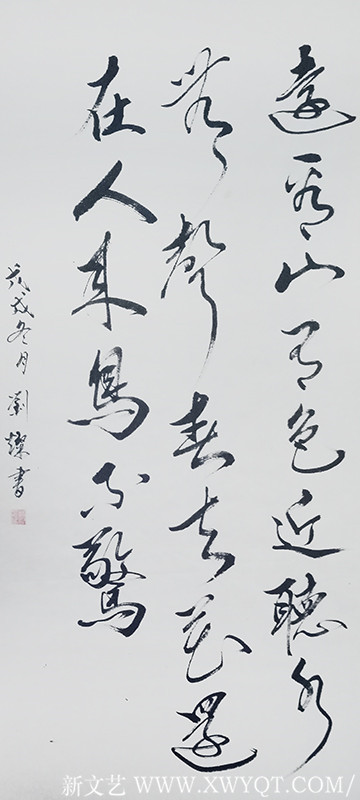 遠看山有色近聽水
無聲春去花還
在人來鳥不驚
戊戌冬月劉燦書
新文艺 WWW.XWYQT.COM/